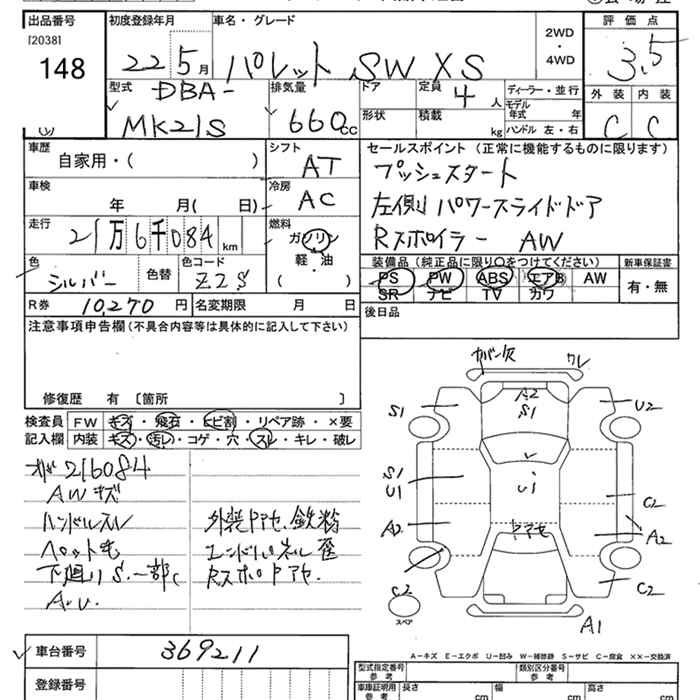 出品番号
[2038]
148
初度登録年月
22 5月
車名・グレード
パレット SW XS
2WD
・
4WD
評価点
3.5
外装 内装
C C
型式
DBA-
MK21S
排気量
660cc
ドア
形状
定員
4人
積載
kg
ディーラー・並行
モデル
年式 年
ハンドル 左・右
車歴
自家用・( )
シフト
AT
セールスポイント (正常に機能するものに限ります)
プッシュスタート
左側パワースライドドア
Rスポイラー AW
車検
年 月( 日)
冷房
AC
走行
21万6千084km
燃料
ガソリン
軽・油
( )
色
シルバー
色替
色コード
Z2S
装備品 (純正品に限り○をつけてください)
PS PW ABS エアB AW
SR ナビ TV カワ
新車保証書
有・無
R券 10,270円
名変期限 月 日
後日品
注意事項申告欄 (不具合内容等は具体的に記入して下さい)
修復歴 有 〔箇所 〕
検査員
記入欄
FW キズ・飛石・ヒビ割・リペア跡・×要
内装 キズ・汚レ・コゲ・穴・スレ・キレ・破レ
216084
AWキズ
ハンドルスレ
ペット毛
下廻りS.一部C
A.U.
外装ヤケアセ.鉄粉
エンドパネル歪
Rスポヤケアセ.
ガバン欠 ワレ
A2
S1
S1
U2
S1
U1
U1
A2
C2
A2
C2
C2
スペア
A1
車台番号 369211
登録番号
A−キズ E−エクボ U−凹み W−補修跡 S−サビ C−腐食 ××−交換済
型式指定番号
参考
類別区分番号
参考
車庫証明用
参考
長さ cm
幅 cm
高さ cm